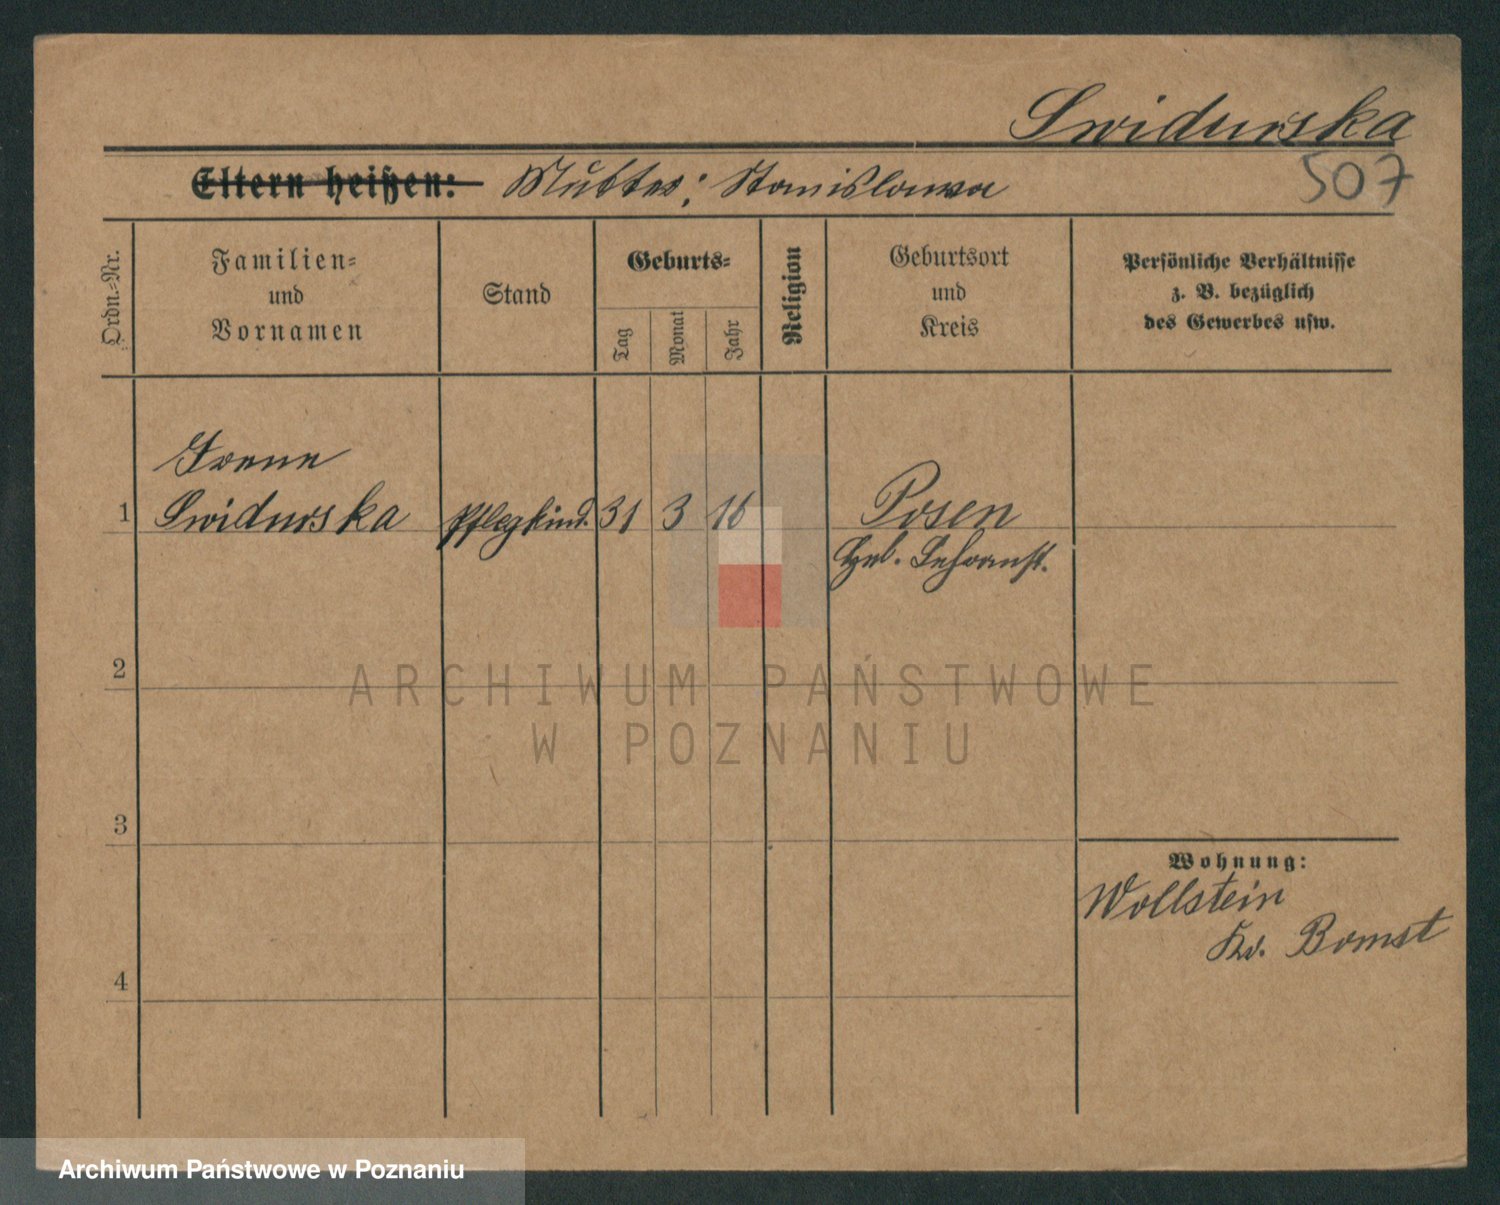 Swidurska
Eltern heißen: Mutter: Stanislawa
507
Ordn.-Nr.
Familien-
und
Vornamen
Stand
Geburts-
Tag
Monat
Jahr
Religion
Geburtsort
und
Kreis
Persönliche Verhältnisse
z. B. bezüglich
des Gewerbes usw.
Irene
1 Swidurska Pflegkind. 31 3 16 Posen
Heb. Lehranst.
2
ARCHIWUM PAŃSTWOWE
W POZNANIU
3
Wohnung:
Wollstein
Kr. Bomst
4
Archiwum Państwowe w Poznaniu